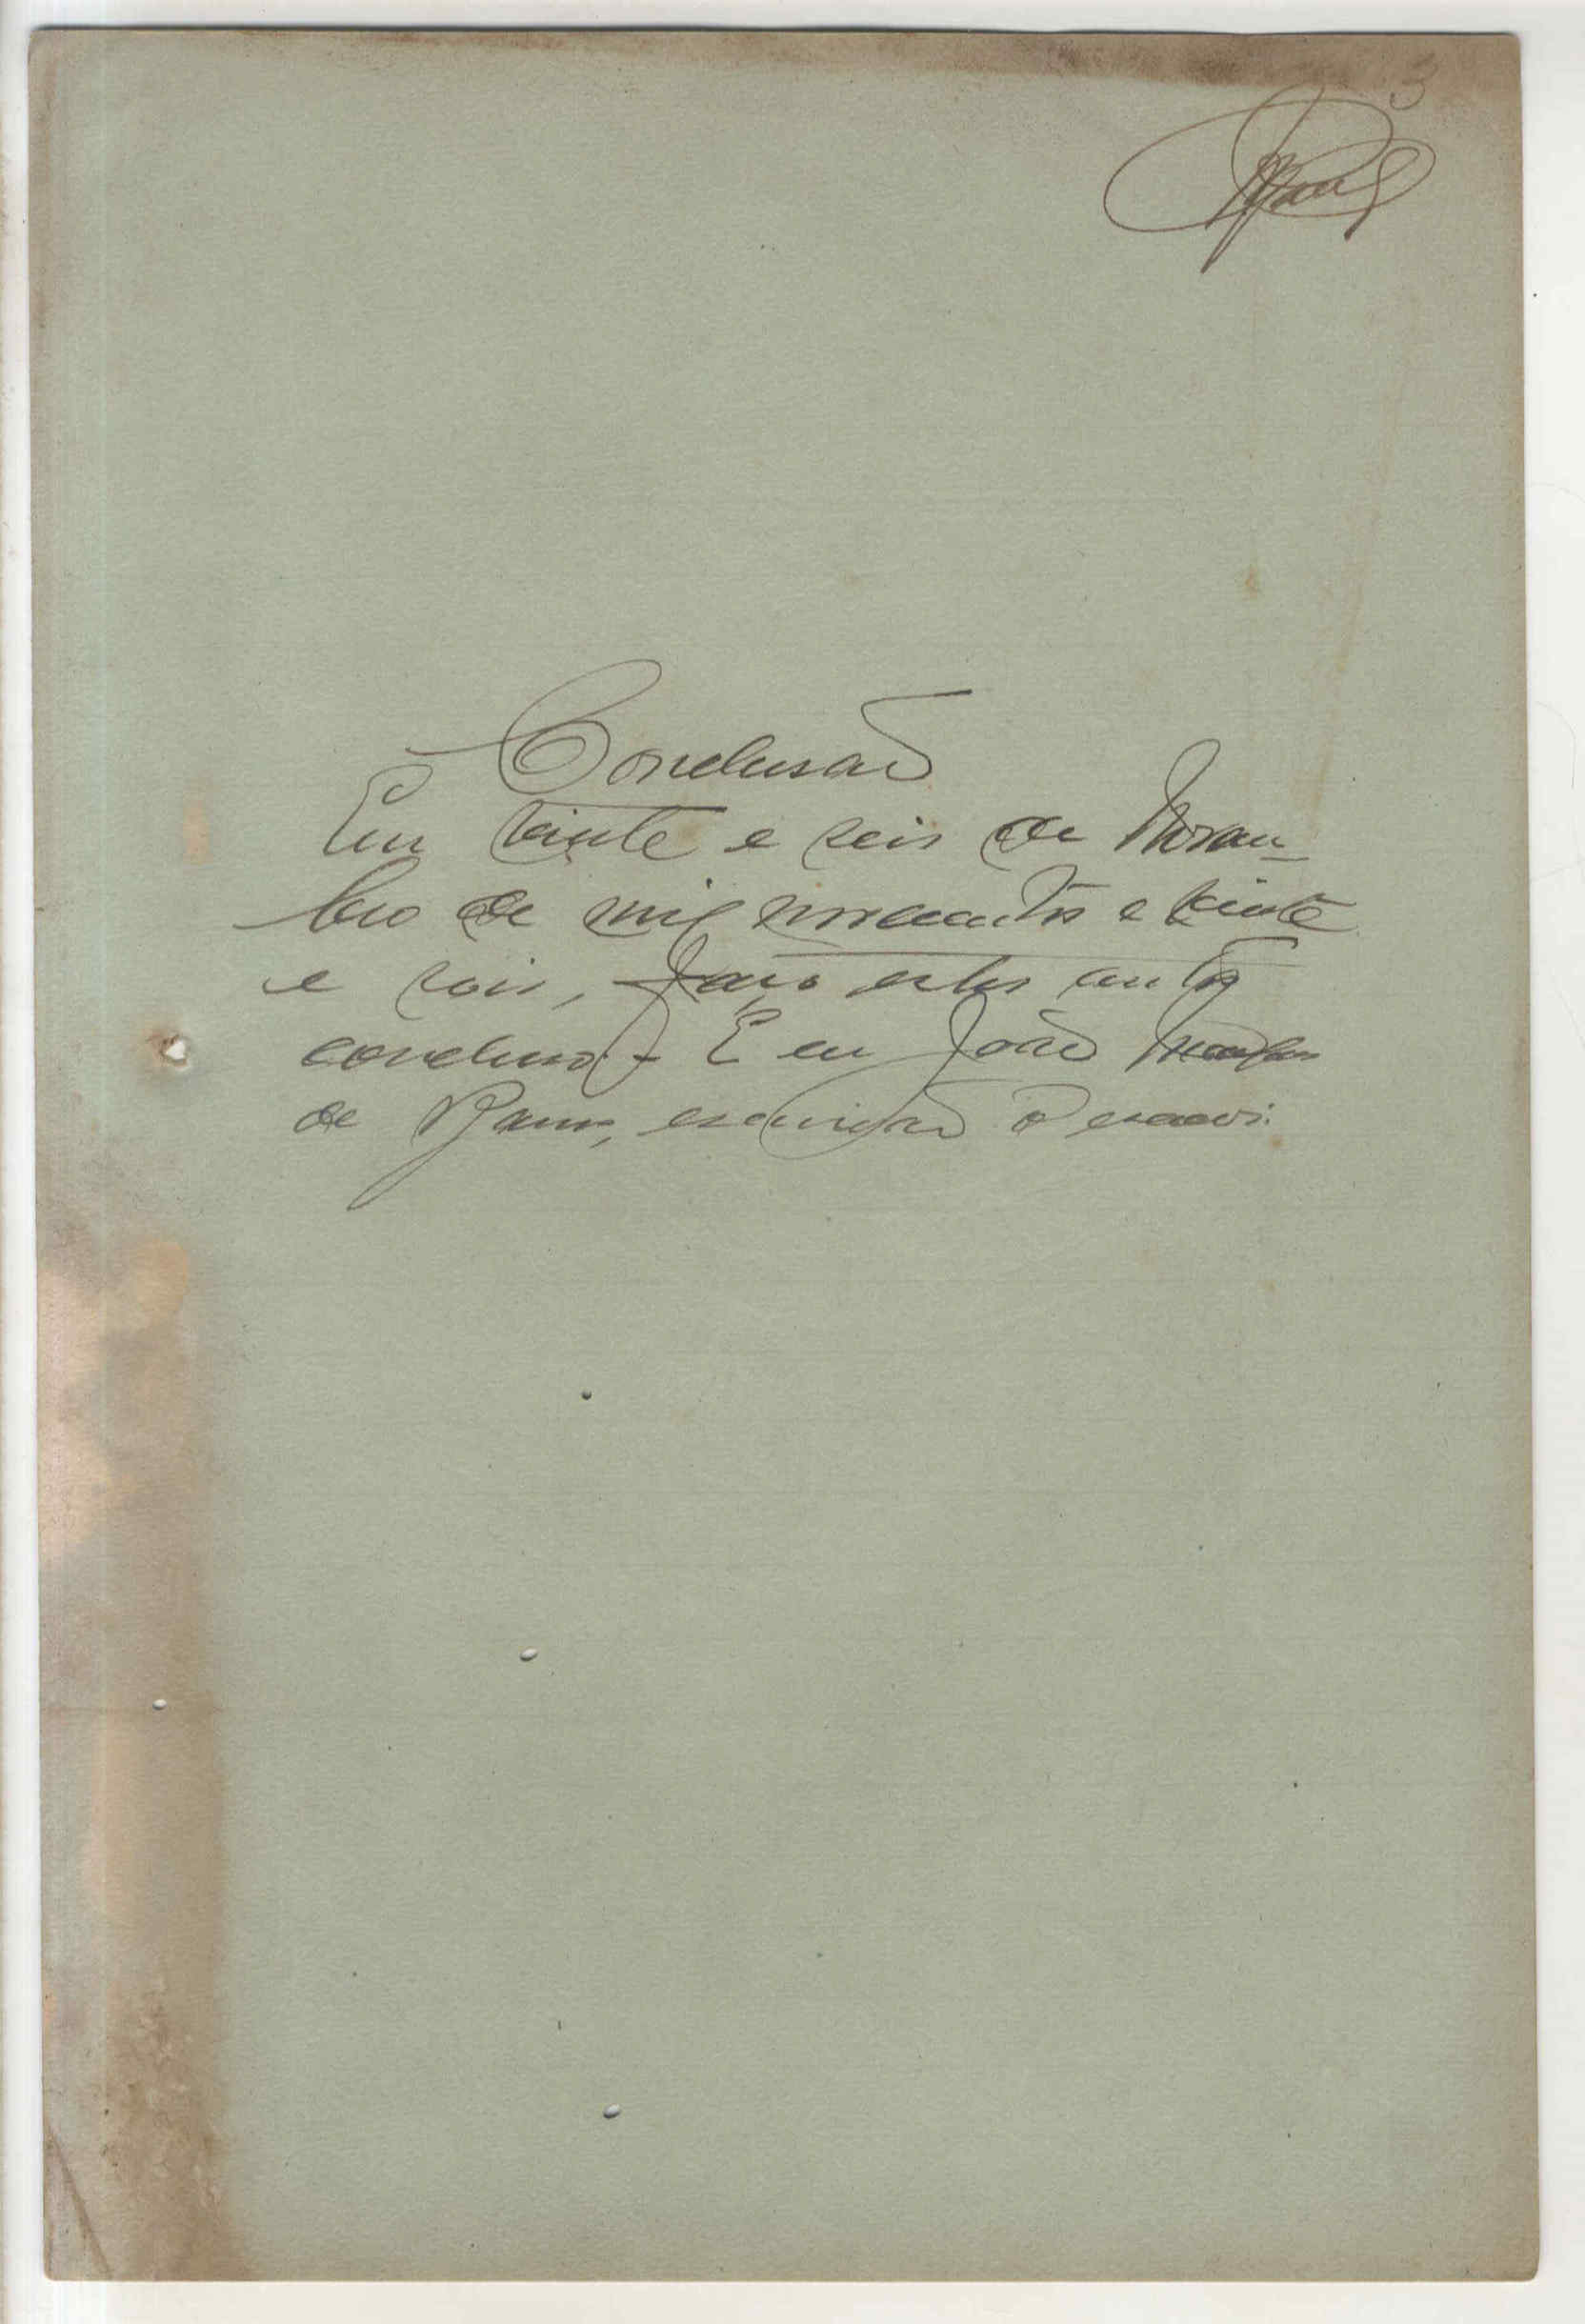 3
Conclusão
Em vinte e seis de Novem-
bro de mil novecentos e vinte
e seis, faço estes autos
conclusos. E eu João
de Barros, escrivão o escrevi.